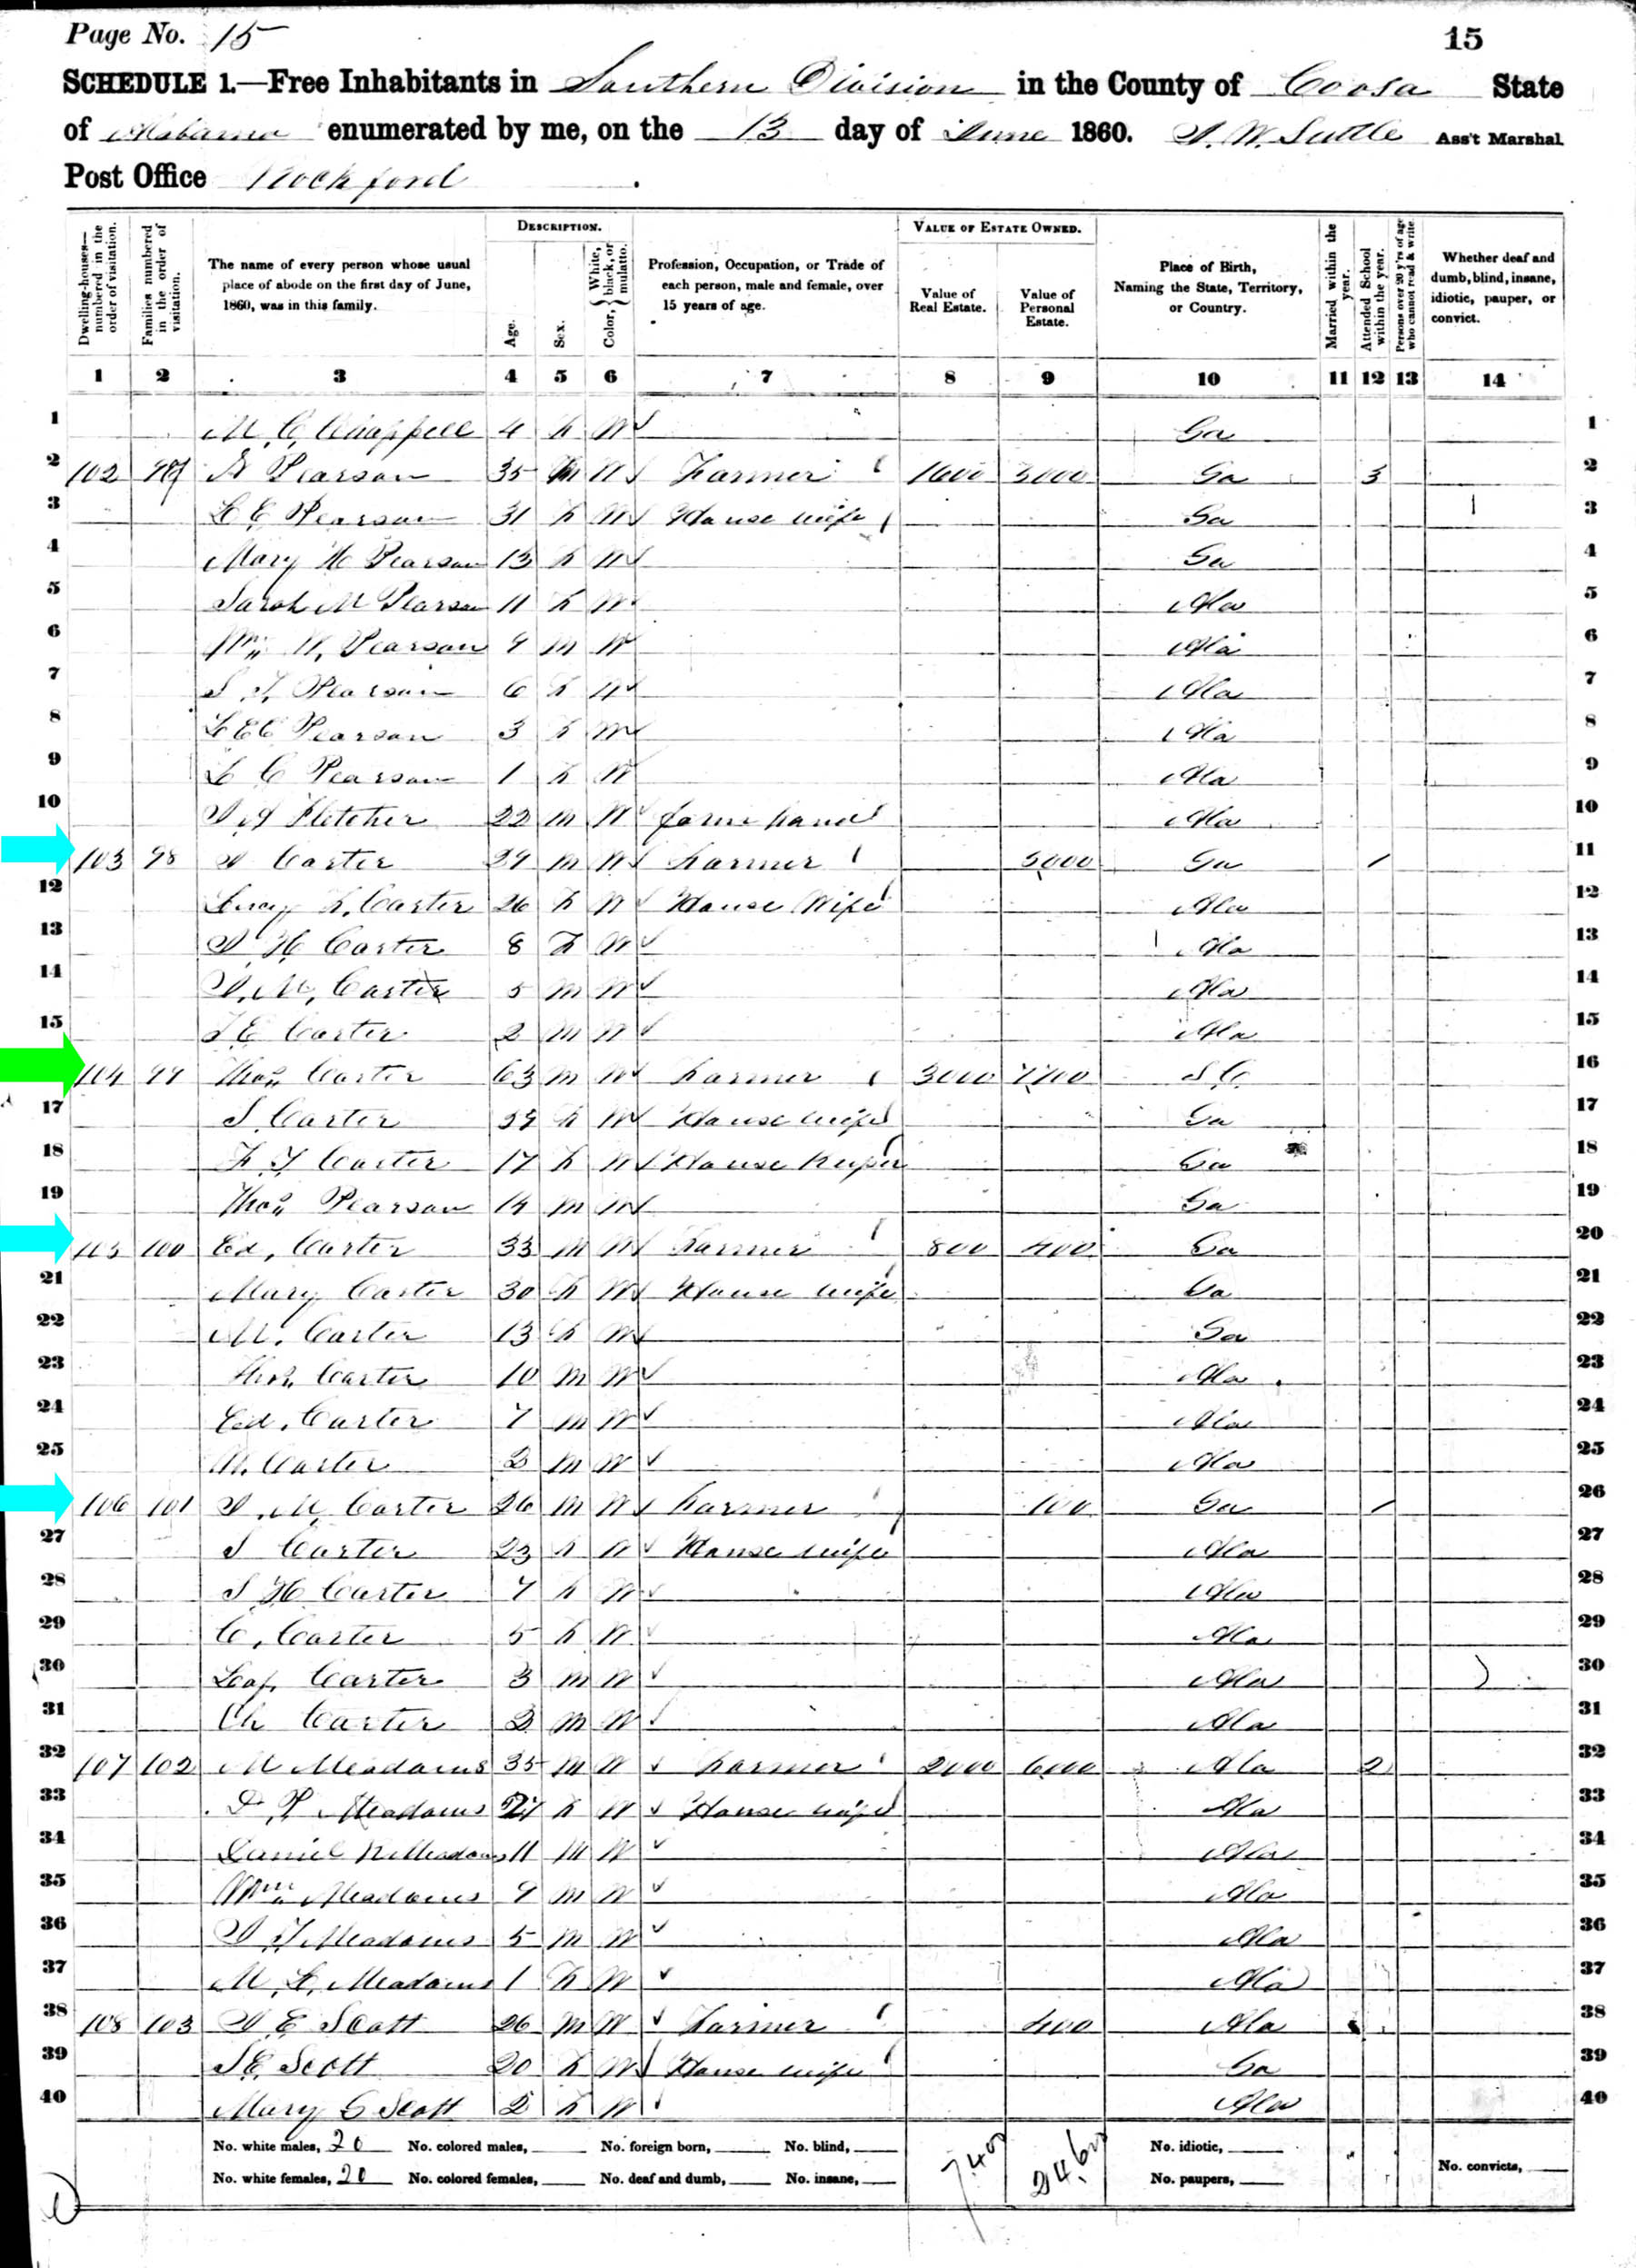 Page No. 15
15
SCHEDULE 1.—Free Inhabitants in Southern Division in the County of Coosa State
of Alabama enumerated by me, on the 13 day of June 1860. Suttle Ass't Marshal
Post Office Rockford
DESCRIPTION. VALUE OF ESTATE OWNED.
Dwelling-houses—numbered in the order of visitation.
Families numbered in the order of visitation.
The name of every person whose usual place of abode on the first day of June, 1860, was in this family.
Age.
Sex.
Color, { White, black, or mulatto.
Profession, Occupation, or Trade of each person, male and female, over 15 years of age.
Value of Real Estate.
Value of Personal Estate.
Place of Birth, Naming the State, Territory, or Country.
Married within the year.
Attended School within the year.
Persons over 20 y'rs of age who cannot read & write.
Whether deaf and dumb, blind, insane, idiotic, pauper, or convict.
1 2 3 4 5 6 7 8 9 10 11 12 13 14
1 M. C. Chappell 4 f W Ga 1
2 102 97 Pearson 35 m W Farmer 1600 3000 Ga 3 2
3 Pearson 31 f W House wife Ga 3
4 Mary H Pearson 13 f W Ga 4
5 Sarah M Pearson 11 f W Ala 5
6 Wm W. Pearson 9 m W Ala 6
7 S Pearson 6 f W Ala 7
8 Pearson 3 f W Ala 8
9 L C Pearson 1 f W Ala 9
10 Fletcher 22 m W farm hand Ala 10
11 103 98 Carter 29 m W Farmer 5000 Ga / 11
12 Carter 26 f W House Wife Ala 12
13 H Carter 8 f W Ala 13
14 M. Carter 5 m W Ala 14
15 E Carter 2 m W Ala 15
16 104 99 Thos Carter 63 m W Farmer 3000 7700 S C. 16
17 S. Carter 59 f W House wife Ga 17
18 Carter 17 f W House Keeper Ga 18
19 Thos Pearson 14 m W Ga 19
20 105 100 Ed. Carter 33 m W Farmer 800 400 Ga 20
21 Mary Carter 30 f W House wife Ga 21
22 M. Carter 13 f W Ga 22
23 Thos. Carter 10 m W Ala 23
24 Ed. Carter 7 m W Ala 24
25 Carter 2 m W Ala 25
26 106 101 M Carter 26 m W Farmer 100 Ga / 26
27 S Carter 23 f W House wife Ala 27
28 S H Carter 7 f W Ala 28
29 C. Carter 5 f W Ala 29
30 Carter 3 m W Ala 30
31 Ch Carter 2 m W Ala 31
32 107 102 M Meadows 35 m W Farmer 2000 6000 Ala 2 32
33 Meadows f W House wife Ala 33
34 Daniel Meadows 11 m W Ala 34
35 Wm Meadows 9 m W Ala 35
36 Meadows 5 m W Ala 36
37 M. Meadows 1 f W Ala 37
38 108 103 E Scott 26 m W Farmer 400 Ala 38
39 S E Scott 20 f W House wife Ga 39
40 Mary Scott 2 f W Ala 40
No. white males, 20 No. colored males, No. foreign born, No. blind, No. idiotic,
No. white females, 20 No. colored females, No. deaf and dumb, No. insane, No. paupers, No. convicts,